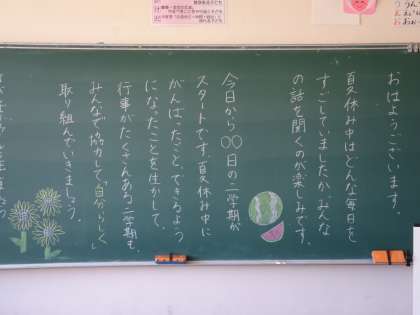 おはようございます。
夏休み中はどんな毎日を
すごしていましたか。みんな
の話を聞くのが楽しみです。
今日から〇〇日の二学期が
スタートです。夏休み中に
がんばったこと、できるよう
になったことを生かして、
行事がたくさんある二学期も、
みんなで協力して、「自分らしく」
取り組んでいきましょう。